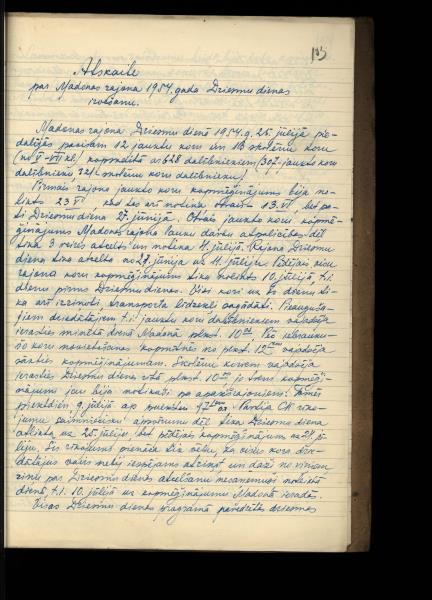 103
Atskaite
par Madonas rajona 1954. gada Dziesmu dienas
izvešanu.
Madonas rajona Dziesmu dienā 1954. g. 25. jūlijā pie-
dalījās pavisam 12 jauktu koru un 18 skolēnu koru
(no V-VII kl.) kopskaitā ar 628 dalībniekiem (307 jauktu koru
dalībnieku, 321 skolēnu koru dalībnieku)
Pirmais rajona jaukto koru kopmēģinājums bija no-
likts 23. VI, bet
ti Dziesmu diena 27. jūnijā. Otrais jaukto koru kopmē-
ģinājums Madonas rajona lauku darbu apstākļu dēļ
tika 3 reizes atcelts un notika 4. jūlijā. Rajona Dziesmu
diena tika atcelta no 27. jūnija uz 11. jūliju. Pēdējais visu
rajona koru kopmēģinājums tika nolikts 10. jūlijā, t.i.
dienu pirms Dziesmu dienas. Visi kori uz šo dienu ti-
ka arī izziņoti, transporta līdzekļi sagādāti. Pieaugušo-
jiem dziedātājiem t.i. jauktu koru dalībniekiem vajadzēja
ierasties minētā dienā Madonā plkst. 10. Pēc iebraukušo
koru novietošanas kopmītnēs no plkst. 12 vajadzēja
sākties kopmēģinājumam. Skolēnu koriem vajadzēja
ierasties Dziesmu dienas rītā plkst. 10, jo viņu kopmēģi-
nājumi jau bija notikuši pa apakšrajoniem.
priekšdien 9. jūlijā ap pulksten 17 Partija CK rīko-
jumu saimniecisku apsvērumu dēļ tika Dziesmu diena
atlikta uz 25. jūliju, bet pēdējais kopmēģinājums uz 24. jū-
liju. Šis rīkojums pienāca tik vēlu, ka visus koru dzie-
dātājus vairs nebij iespējams atziņot, un daži no viņiem
ziņu par Dziesmu dienas atcelšanu nesaņēmuši noliktā
dienā, t.i. 10. jūlijā uz kopmēģinājumu Madonā ieradās.
Visas Dziesmu dienas programā paredzētās dziesmas